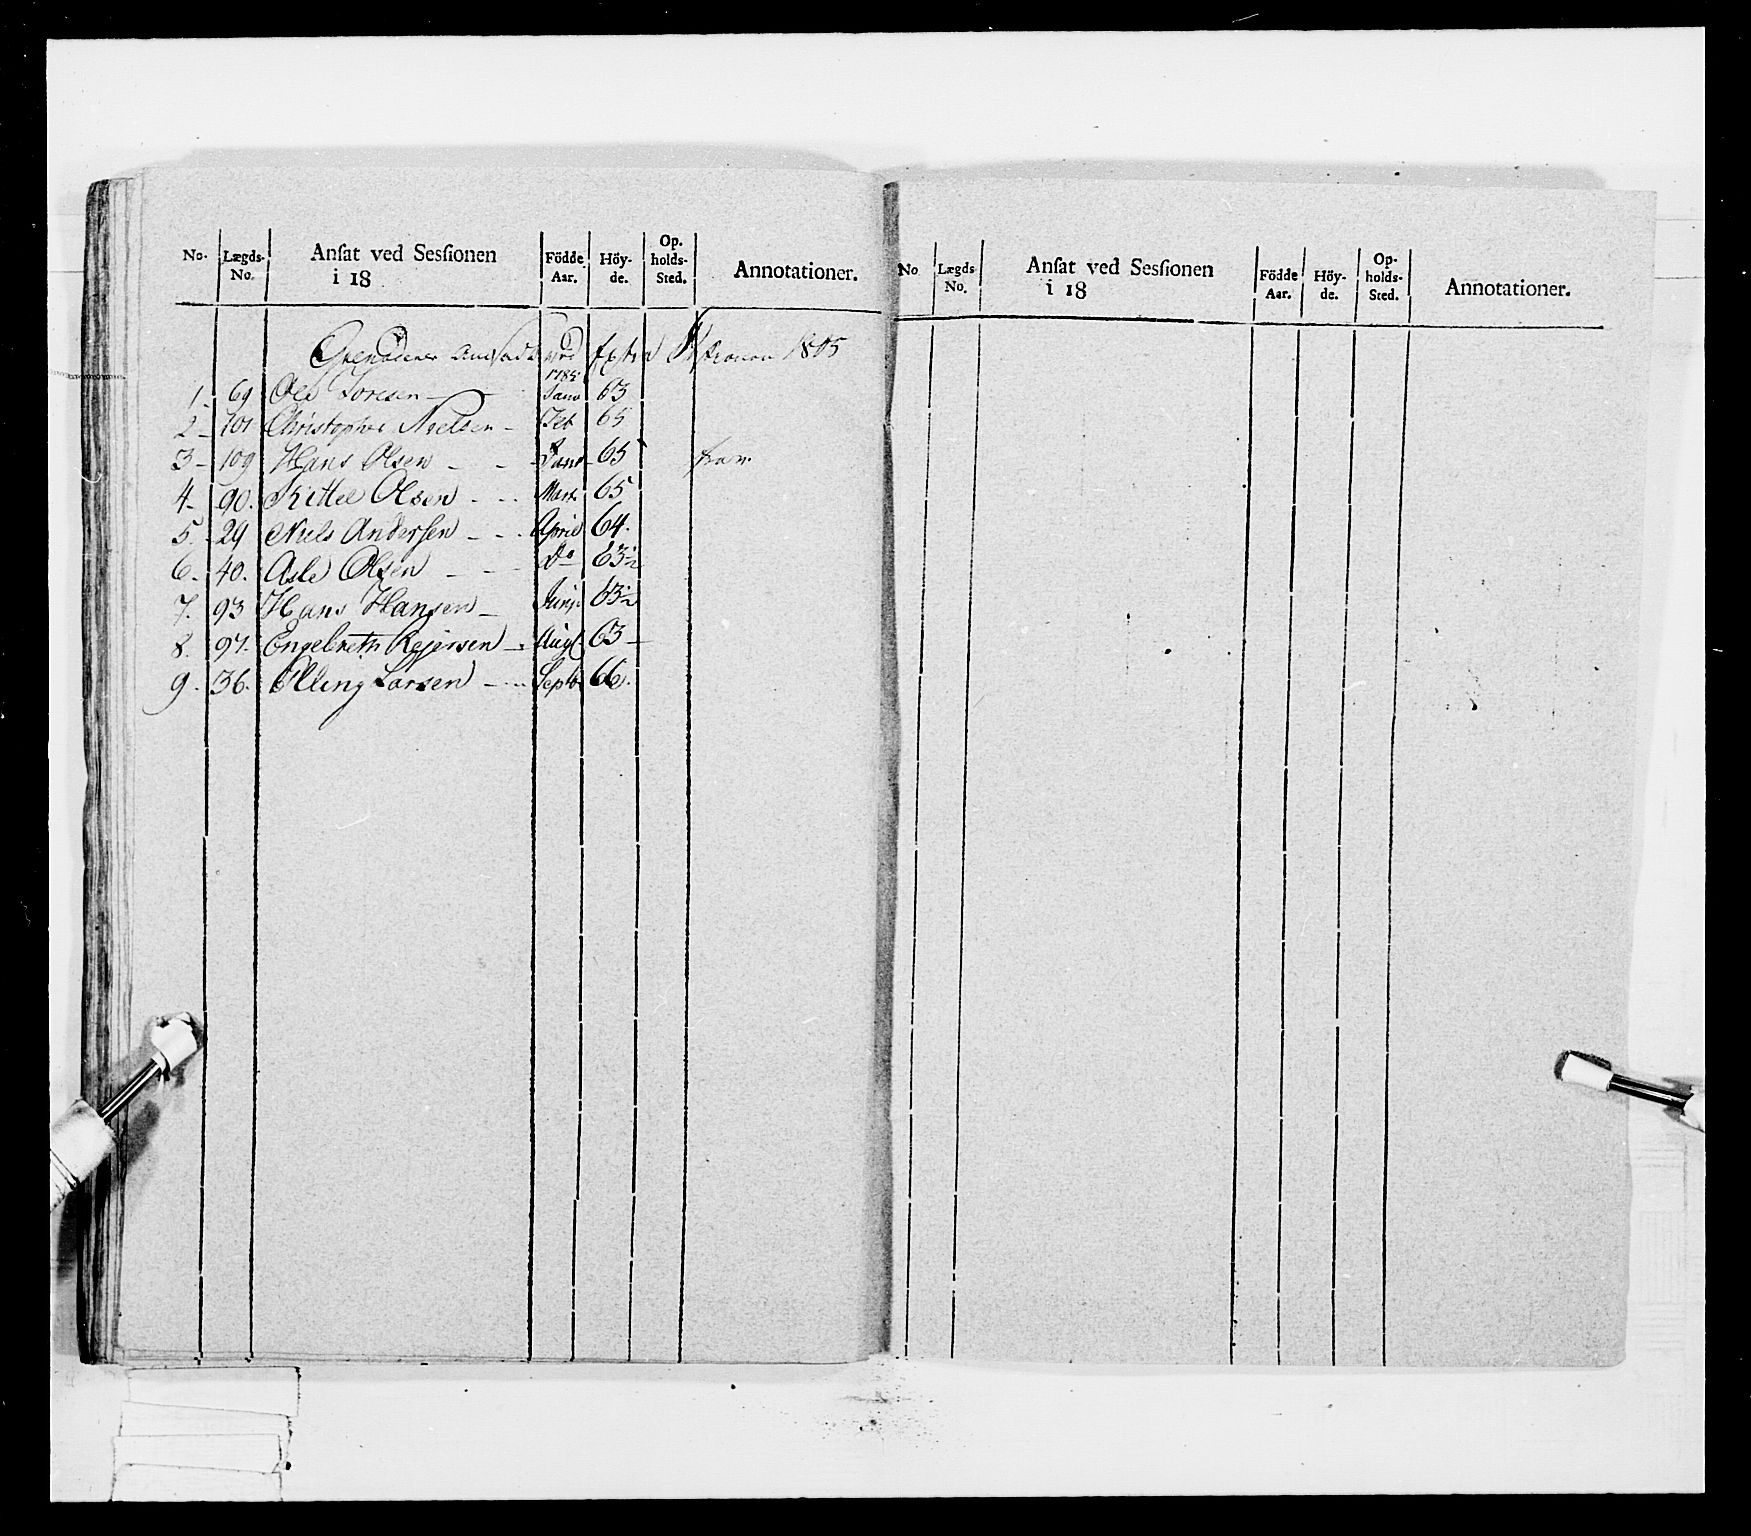 No. Lægds-No. Anſat ved Sesſionen i 18 Födde Aar. Höy-de. Op-holds-Sted. Annotationer.
Grenaderer Ansadt ved Extra 1805
1785
1. 69 Ole Joresen Janv 63
2 101 Christopher Nielsen Feb 65
3 109 Hans Olsen Janv 65
4. 90. Kittel Olsen Mart 65
5. 29 Niels Andersen April 64.
6. 40. Asle Olsen Do 63½
7. 93 Hans Hansen Junj 63½
8. 97. Engelbreth Rejersen Aug 63
9. 36. Elling Larsen Septb 66.
No Lægds No. Anſat ved Sesſionen i 18 Födde Aar. Höy-de. Op-holds-Sted. Annotationer.